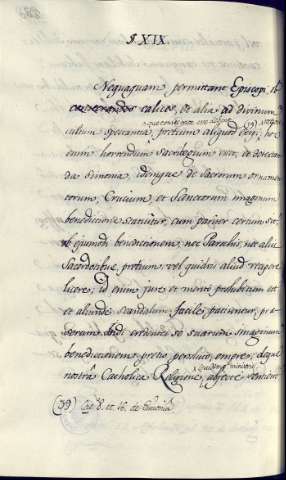 §. XIX.
Nequaquam permittant Episcopi, ob
calices, et alia ad divinum
cultum spectantia, pretium aliquod exigi, hoc
enim horrendum Sacrilegium esset, et detestan
da Simonia, idemque de Sacrorum ornamen
torum, Crucium, et Sanctorum imaginum
benedictione statuitur, cum pariter certum sit,
ob ejusmodi benedictionem, nec Parochis, nec aliis
Sacerdotibus, pretium, vel quidvis aliud recipere
licere; id enim jure et merito prohibitum est
et aliunde scandalum facile patiuntur,
Indi credentes se suarum imaginum
benedictionem pretio persoluto, emere; deque
nostra Catholica Religione,
(39) Cap. 8. et 16. de Simonia